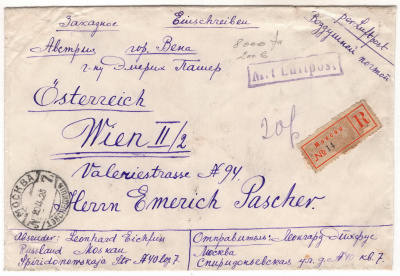 Заказное Einschreiben
Австрия гор. Вена
г-ну Эмерих Пашер
per Luftpost
Воздушной почтой
8000 fr
200 €
Mit Luftpost
Österreich
Wien II/2
20 f
Valeriestrasse № 94
Herrn Emerich Pascher
МОСКВА
Москва
№ 14
R
Absender: Leonhard Eichfus
Russland Moskau
Spiridonowskaja Str № 40 log 7
Отправитель: Леонгард
Москва
Спиридоньевская ул. д. № кв. 7.